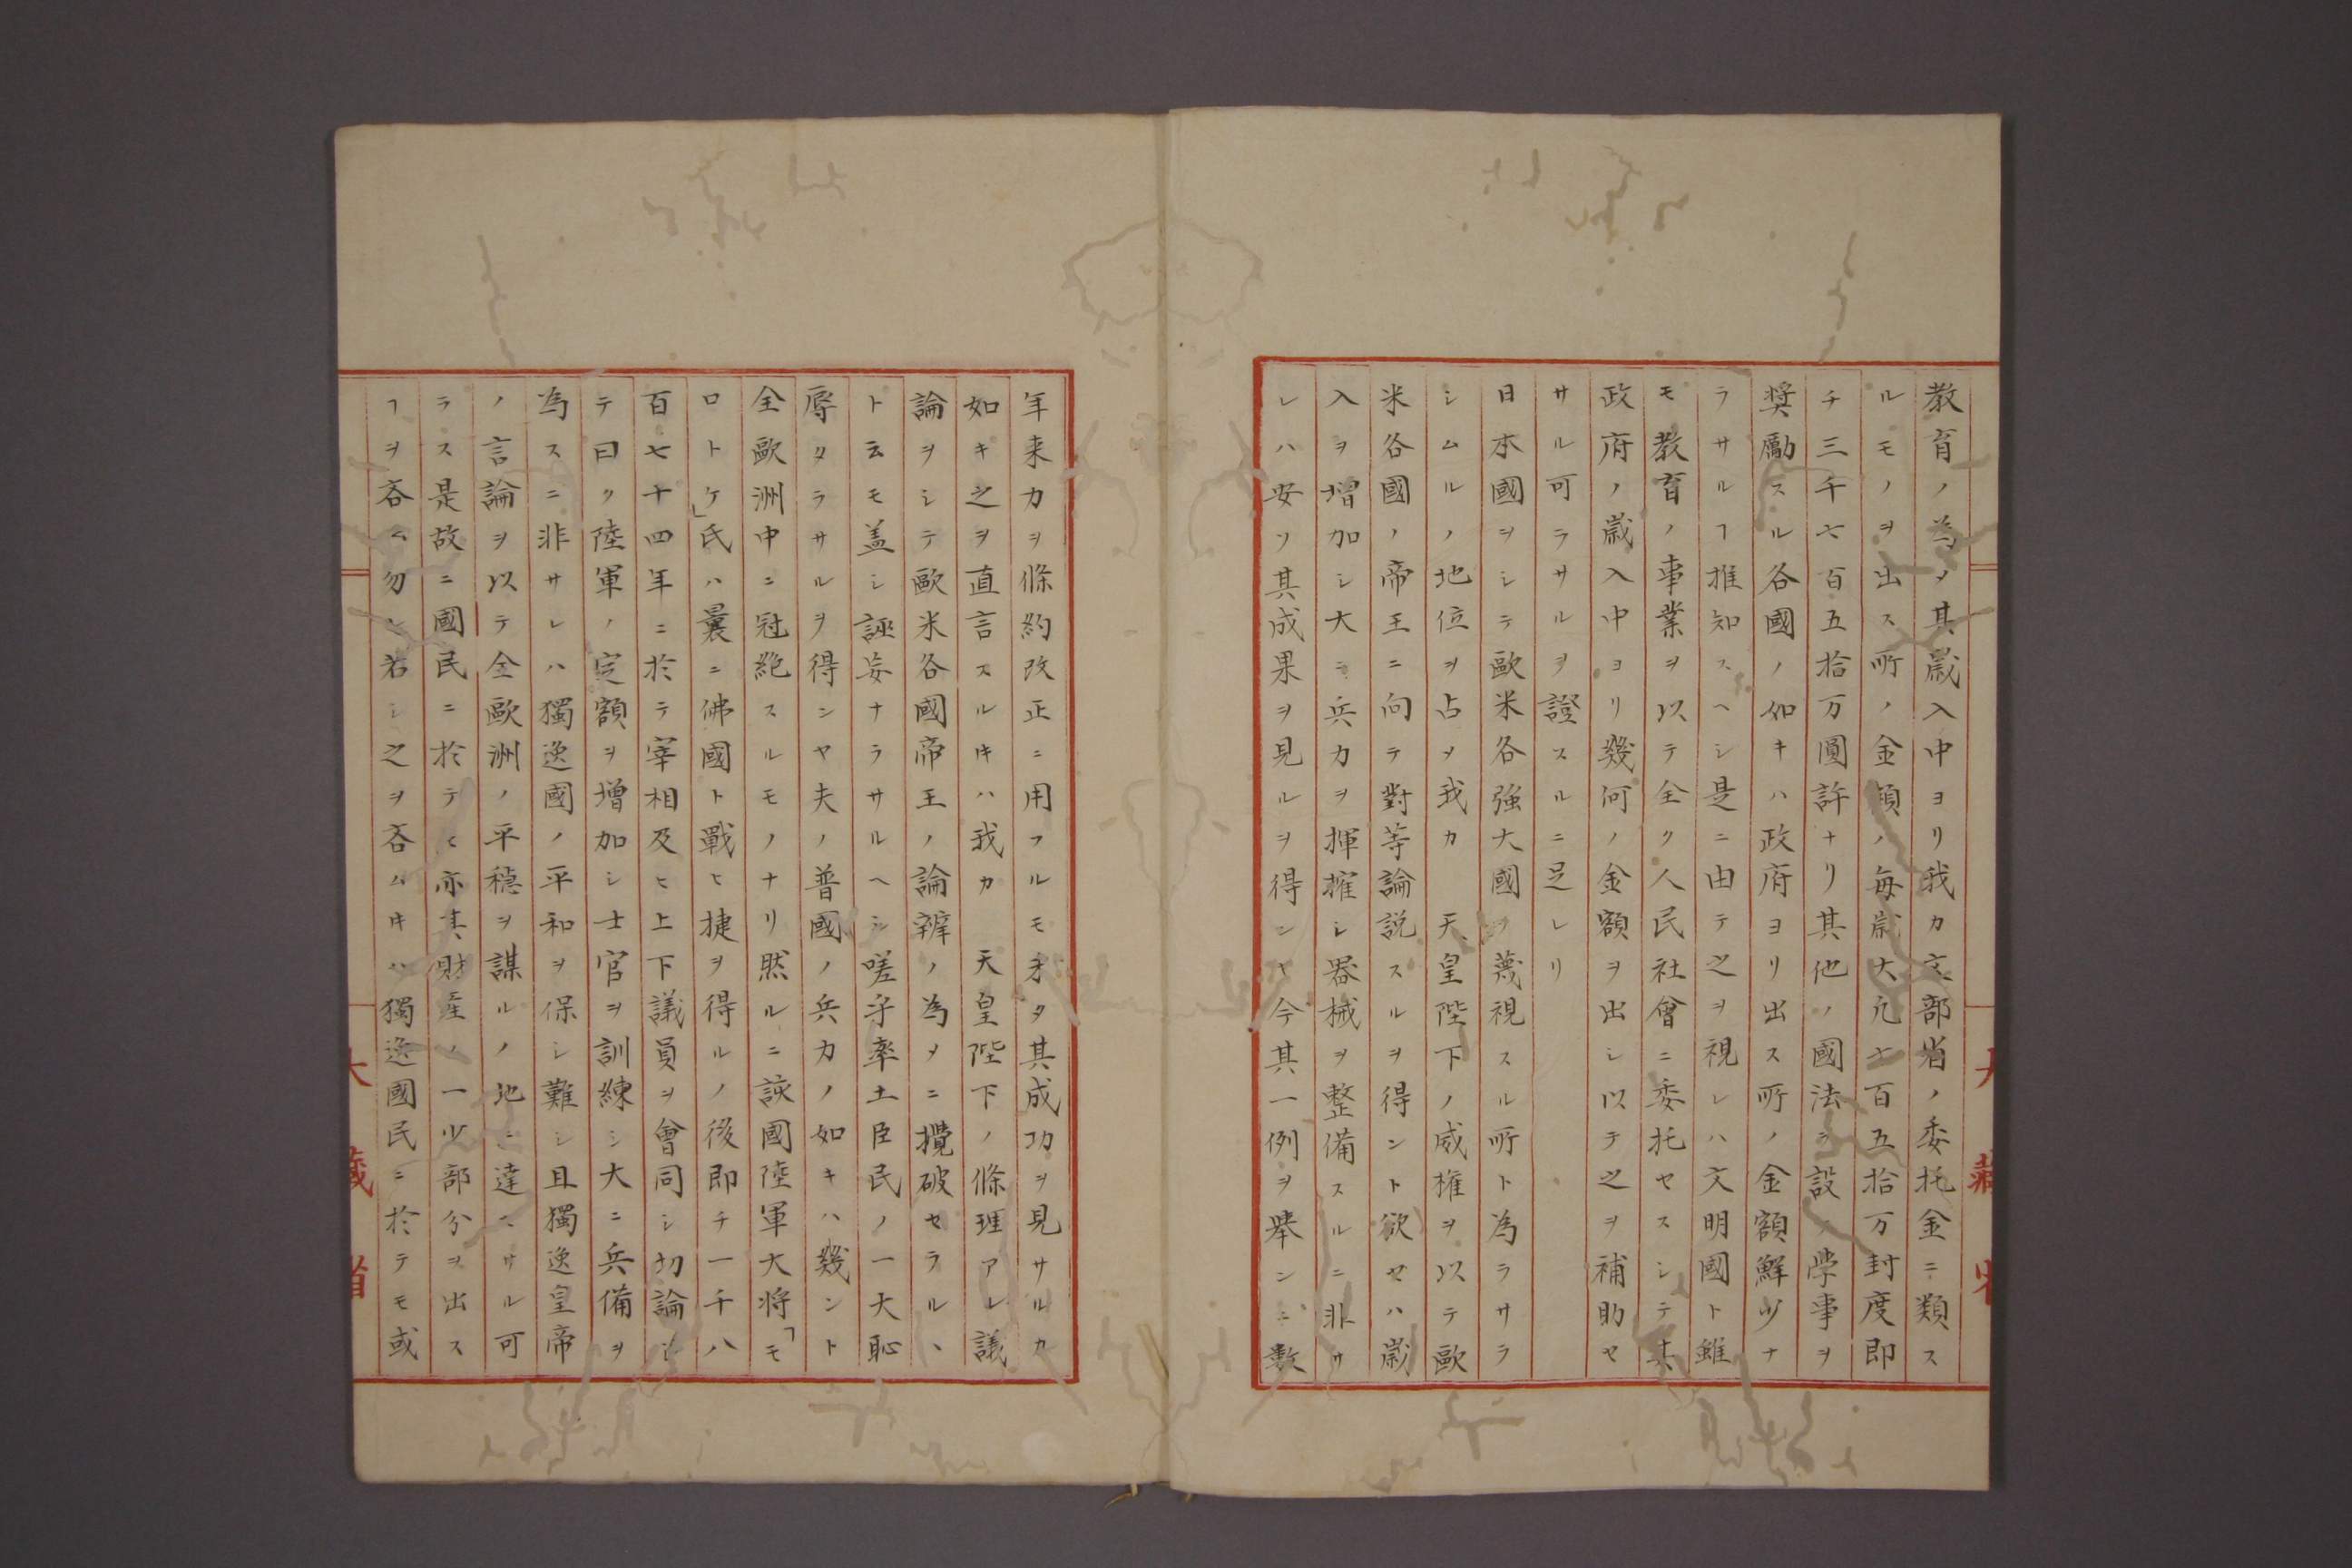 教育ノ為メ其歳入中ヨリ我カ文部省ノ委托金ニ類ス
ルモノヲ出ス所ノ金額ノ毎歳大凡七百五拾万封度即
チ三千七百五拾万圓許ナリ其他ノ國法ヲ設ケ學事ヲ
奨勵スル各國ノ如キハ政府ヨリ出ス所ノ金額鮮少ナ
ラサルヿ推知スヘシ是ニ由テ之ヲ視レハ文明國ト雖
モ教育ノ事業ヲ以テ全ク人民社會ニ委托セスシテ其
政府ノ歳入中ヨリ幾何ノ金額ヲ出シ以テ之ヲ補助セ
サル可ラサルヲ證スルニ足レリ
日本國ヲシテ歐米各強大國ヲ蔑視スル所ト為ラサラ
シムルノ地位ヲ占メ我カ 天皇陛下ノ威権ヲ以テ歐
米各國ノ帝王ニ向テ對等論説スルヲ得ント欲セハ歳
入ヲ増加シ大ニ兵力ヲ揮擢シ器械ヲ整備スルニ非サ
レハ安ソ其成果ヲ見ルヲ得ンヤ今其一例ヲ舉ンニ數
年来力ヲ條約改正ニ用フルモ未タ其成功ヲ見サルカ
如キ之ヲ直言スルキハ我カ 天皇陛下ノ條理アレ議
論ヲシテ歐米各國帝王ノ論辯ノ為メニ攪破セラルヽ
ト云モ盖シ誣妄ナラサルヘシ嗟乎率土臣民ノ一大恥
辱タラサルヲ得ンヤ夫ノ普國ノ兵力ノ如キハ幾ント
全歐洲中ニ冠絶スルモノナリ然ルニ該國陸軍大将「モ
ロトケ」氏ハ曩ニ佛國ト戰ヒ捷ヲ得ルノ後即チ一千八
百七十四年ニ於テ宰相及ヒ上下議員ヲ會同シ切論シ
テ曰ク陸軍ノ定額ヲ増加シ士官ヲ訓練シ大ニ兵備ヲ
為スニ非サレハ獨逸國ノ平和ヲ保シ難シ且獨逸皇帝
ノ言論ヲ以テ全歐洲ノ平穏ヲ謀ルノ地ニ達セサル可
ラス是故ニ國民ニ於テモ亦其財産ノ一少部分ヲ出ス
ヿヲ吝ム勿レ若シ之ヲ吝ムキハ獨逸國民ニ於テモ或
大藏省
大藏省